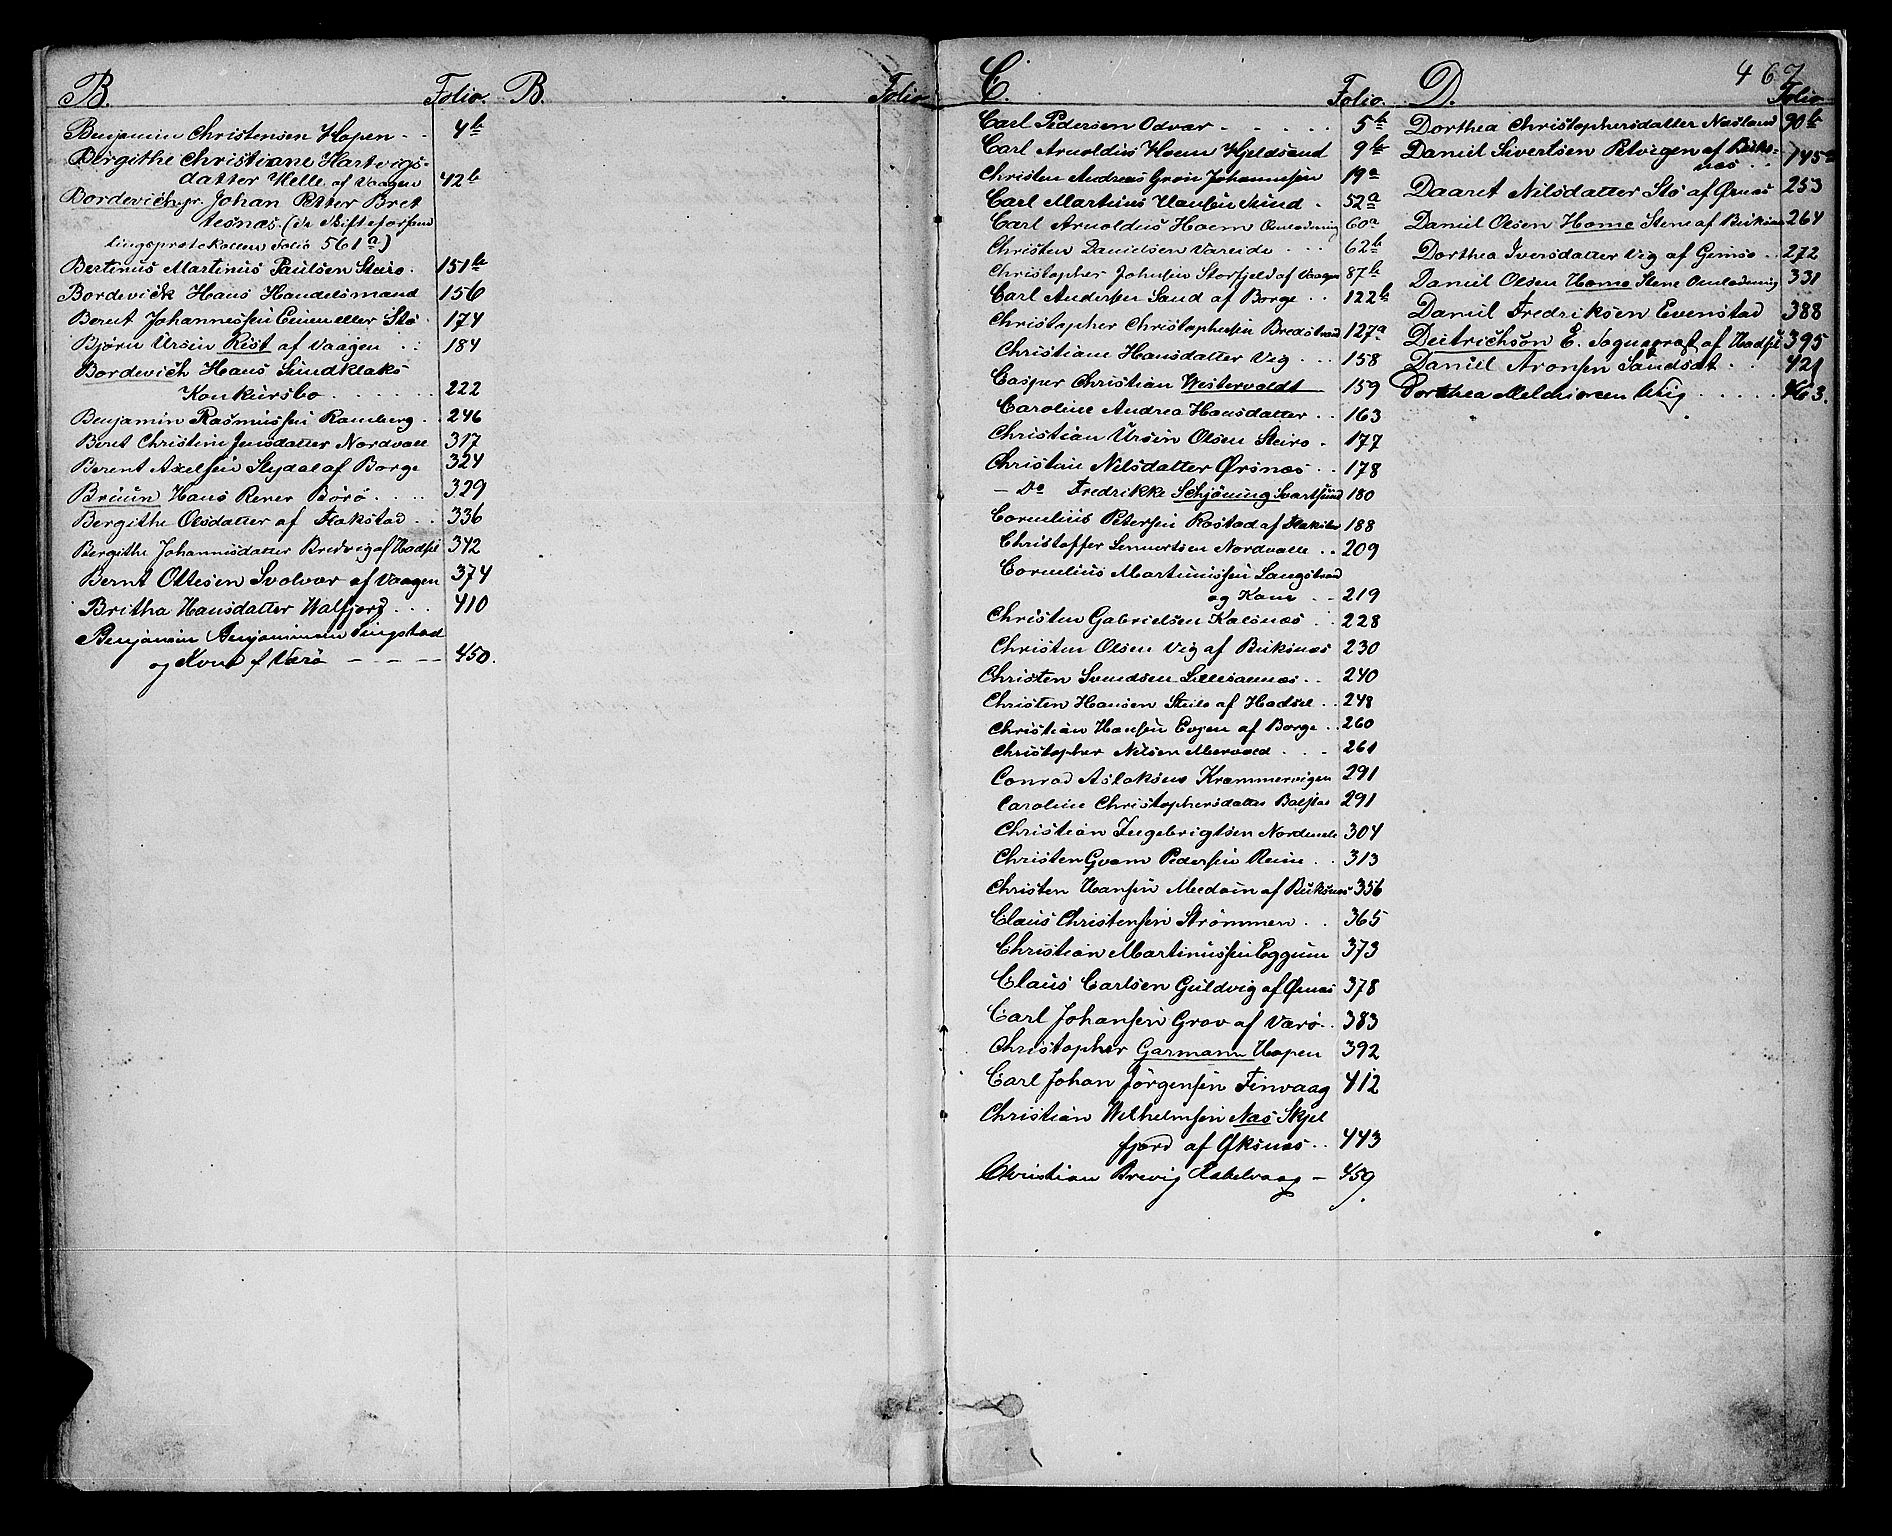 B. Folio.
Benjamin Christensen Hopen . . 4b
Bergithe Christiane Hartvigs-
datter Helle af Vaagen 42b
Bordevich jr. Johan Petter Bret
tesnæs (i Skifteforhand
lingsprotokollen Folio 561a)
Bertinus Martinus Paulsen Steiro. 151b
Bordevick Hans Handelsmand 156
Bernt Johannessen Eller Stø . 174
Bjørn Ursin Rist af Vaagen . : 184
Bordevich Hans Sundklaks
Konkursbo . . . . . . 222
Benjamin Rasmussen Ramberg . . 246
Beret Christine Jensdatter Nordvall 317
Berent Axelsen Slydal af Borge 324
Bruun Hans Rener Børø . . . . 329
Bergithe Olsdatter af Flakstad . . 336
Bergithe Johannisdatter Bredvig af Hadsel 342
Bernt Ottesen Svolvær af Vaagen 374
Britha Hansdatter Valfjord . . . 410
Benjamin Benjaminsen Tingstad
og Kone af Værø — — — — 450.
B. Folio
C. Folio.
Carl Pedersen Odvær . . . . . . 5b
Carl Arnoldus Hoem Hjeldsand 9b
Christen Andreas Grøn Johannesen 19a
Carl Martius Hansen Sund . 52a
Carl Arnoldus Hoem Omlodning 60a
Christen Danielsen Vareide . . . 62b
Christopher Johnsen Storfjeld af Vaagen 87b
Carl Andersen Sand af Borge . . 122b
Christopher Christophersen Bredstrand 127a
Christiane Hansdatter Vig . . . 158
Casper Christian Westervoldt 159
Caroline Andrea Hansdatter . . 163
Christian Ursin Olsen Steiro . 177
Christine Nilsdatter Ørsnæs . . 178
— Do Fredrikke Schjøning Svartsund 180
Cornelius Petersen Rostad af Flakstad 188
Christoffer Lennertsen Nordvalle . . 209
Cornelius Martinussen Langstrand
og Kone . . 219
Christen Gabrielsen Kalsnæs . . 228
Christen Olsen Vig af Buksnæs 230
Christen Svendsen Lillesannæs . . 240
Christen Hansen Steilo af Hadsel . . 248
Christian Hansen Evjen af Borge . . 260
Christopher Nilsen Mærvold . . . 261
Conrad Aslaksen Kræmmervigen 291
Caroline Christophersdatter Balstad 291
Christian Ingebrigtsen 304
Christen Gvam Pedersen Reine . . 313
Christen Hansen Medøin af Buksnæs 356
Claus Christensen Strømmen . . 365
Christian Martinussen Eggum 373
Claus Carlsen Guldvig af Øxnæs 378
Carl Johansen Grov af Værø . . 383
Christopher Garmann Hopen 392
Carl Johan Jørgensen Finvaag 412
Christian Wilhelmsen Næs Skjel
fjord af Øksnæs . . 443
Christian Brevig Kabelvaag — 459.
D. 467 Folio
Dorthea Christophersdatter Næsland 90b
Daniel Sivertsen Petvigen af Buks-
næs . . 145a
Daaret Nilsdatter Stø af Øxnæs 253
Daniel Olsen Homo Stene af Buksnæs 264
Dorthea Iversdatter Vig af Gimsø . . 272
Daniel Olsen Homo Stene Omlodning 331
Daniel Fredriksen Evenstad 388
Deitrichson E. Sognepræst af Hadsel 395
Daniel Aronsen Sandslet . . 421
Dorthea Melchiorsen Urig . . . . . 463.